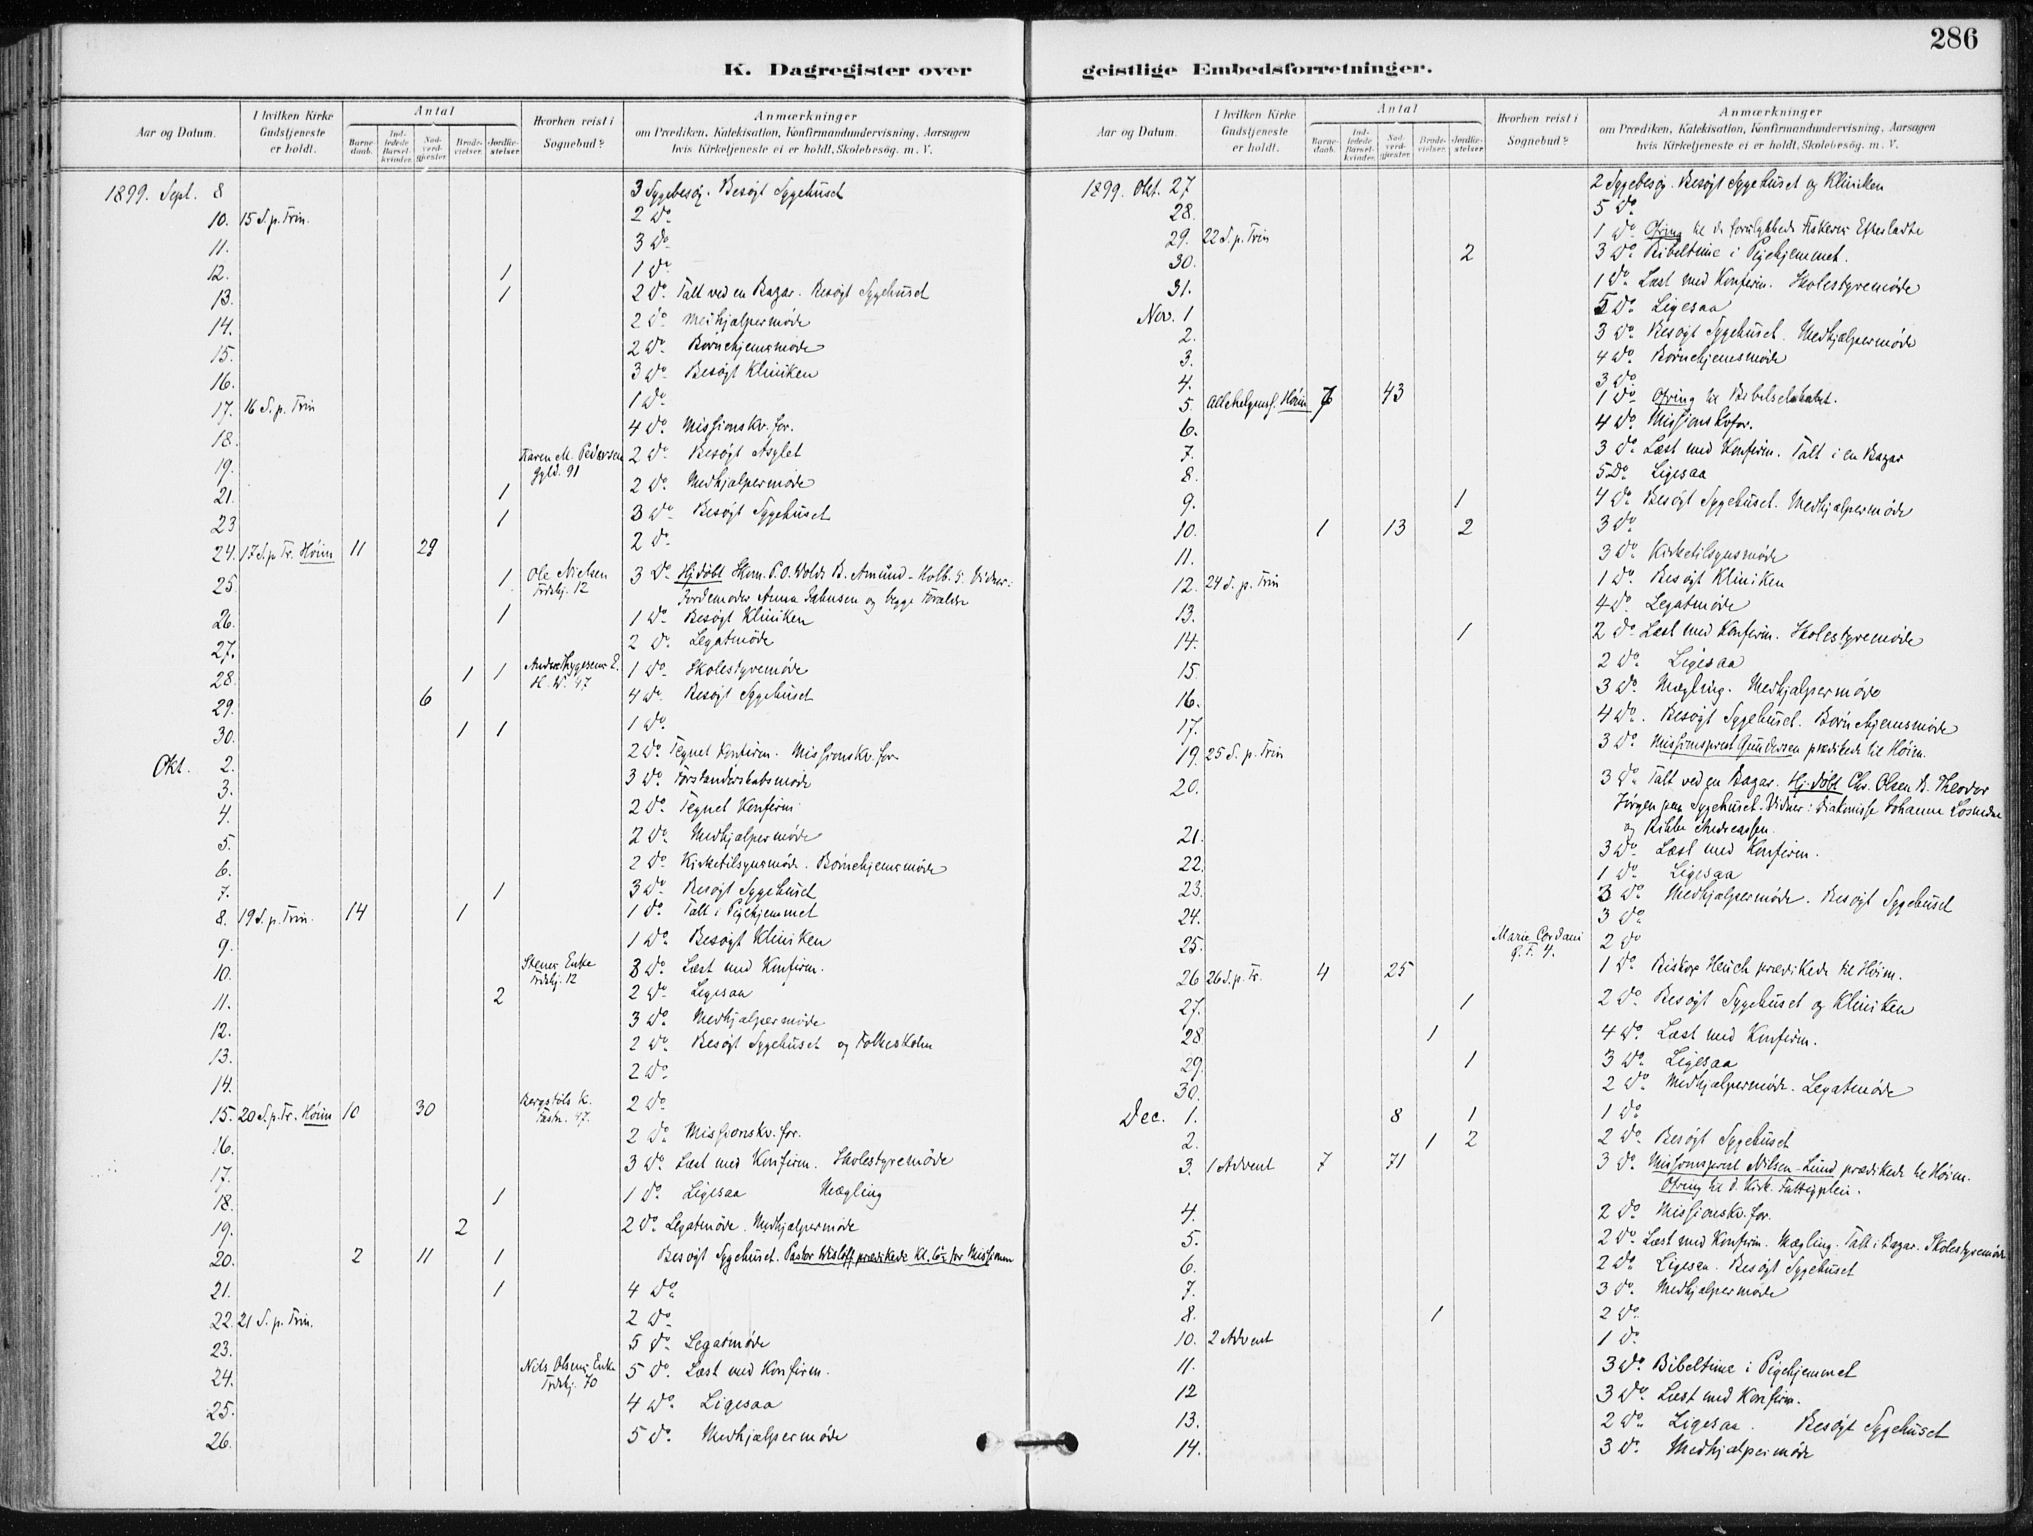 286
K. Dagregister over geistlige Embedsforretninger.
Aar og Datum.
I hvilken Kirke Gudstjeneste er holdt.
Antal
Barnedaab.
Indledede Barselkvinder.
Nadverdgjester.
Brudevielser.
Jordfæstelser.
Hvorhen reist i Sognebud?
Anmærkninger
om Prædiken, Katekisation, Konfirmandundervisning, Aarsagen
hvis Kirketjeneste ei er holdt, Skolebesög. m. V.
1899. Sept. 8 3 Sygebesøg. Besøgt Sygehuset
10. 15 S. p. Trin. 2 Do
11. 3 Do
12. 1 1 Do
13. 1 2 Do Talt ved en Bazar. Besøgt Sygehuset
14. 2 Do Medhjælpermøde
15. 2 Do Børnehjemsmøde
16. 3 Do Besøgt Kliniken
17. 16 S. p. Trin 1 Do
18. 4 Do Missionskv. for.
19. Karen M. Pedersen Gyld. 91 2 Do Besøgt Asylet
21. 1 2 Do Medhjælpermøde
23 1 3 Do Besøgt Sygehuset
24. 17 S. p. Tr. Høim 11 29 2 Do
25. 1 Ole Nielsen Trdskj. 12 3 Do Hj.døbt Skom. P. O. Wolds B. Amund - Holb. 5. Vidner:
Jordemoder Anna Jahnsen og begge Forældre
26. 1 1 Do Besøgt Kliniken
27. 2 Do Legatmøde
28. 1 1 Anders Lygesens E. H. W. 47 1 Do Skolestyremøde
29. 6 4 Do Besøgt Sygehuset
30. 1 1 1 Do
Okt. 2. 2 Do Tegnet Konfirm. Missionskv. for.
3. 3 Do Forstanderskabsmøde
4. 2 Do Tegnet Konfirm.
5. 2 Do Medhjælpermøde
6. 2 Do Kirketilsynsmøde. Børnehjemsmøde
7. 1 3 Do Besøgt Sygehuset
8. 19 S. p. Trin. 14 1 1 Do Talt i Pigehjemmet
9. 1 Do Besøgt Kliniken
10. Steens Enke Trdskj. 12 3 Do Læst med Konfirm.
11. 2 2 Do Ligesaa
12. 3 Do Medhjælpermøde
13. 2 Do Besøgt Sygehuset og Folkeskolen
14. 2 Do
15. 20 S. p. Tr. Høim 10 30 Bergstøls K. Tastn. 47. 2 Do
16. 2 Do Missionskv. for.
17. 3 Do Læst med Konfirm. Skolestyremøde
18. 1 1 Do Ligesaa Mægling
19. 2 2 Do Legatmøde. Medhjælpermøde
20. 2 11 1 Besøgt Sygehuset. Pastor Wisløff prædikede Kl. 6 for Missionen
21. 1 4 Do
22. 21 S. p. Trin. 2 Do
23. 5 Do Legatmøde
24. Nils Olsens Enke Trdskj. 70 5 Do Læst med Konfirm.
25. 4 Do Ligesaa
26. 5 Do Medhjælpermøde
Aar og Datum.
I hvilken Kirke Gudstjeneste er holdt.
Antal
Barnedaab.
Indledede Barselkvinder.
Nadverdgjester.
Brudevielser.
Jordfæstelser.
Hvorhen reist i Sognebud?
Anmærkninger
om Prædiken, Katekisation, Konfirmandundervisning, Aarsagen
hvis Kirketjeneste ei er holdt, Skolebesög. m. V.
1899. Okt. 27 2 Sygebesøg. Besøgt Sygehuset og Kliniken
28. 5 Do
29. 22 S. p. Trin 1 Do Ofring til de forulykkede Fiskeres Efterladte
30. 2 3 Do Bibeltime i Pigehjemmet.
31. 1 Do Læst med Konfirm. Skolestyremøde
Nov. 1 5 Do Ligesaa
2. 3 Do Besøgt Sygehuset. Medhjælpermøde
3. 4 Do Børnehjemsmøde
4. 3 Do
5. Allehelgensf. Høim 7 43 1 Do Ofring til Bibelselskabet.
6. 4 Do Missionskvfor.
7. 3 Do Læst med Konfirm. Talt i en Bazar
8. 5 Do Ligesaa
9. 1 4 Do Besøgt Sygehuset. Medhjælpermøde
10. 1 13 2 3 Do
11. 3 Do Kirketilsynsmøde
12. 24 S. p. Trin 1 Do Besøgt Kliniken
13. 4 Do Legatmøde
14. 1 2 Do Læst med Konfirm. Skolestyremøde
15. 2 Do Ligesaa
16. 3 Do Mægling. Medhjælpermøde
17. 4 Do. Besøgt Sygehuset. Børnehjemsmøde
19. 25 S. p. Trin 3 Do Missionsprest Gundersen prædikede til Høim.
20. 3 Do Talt ved en Bazar. Hj.døbt Chr. Olsen B. Theodor
Jørgen paa Sygehuset. Vidner: Diakonisse Johanne Losnedne
og Rikke Andreassen.
21. 3 Do Læst med Konfirm.
22. 1 Do Ligesaa
23. 3 Do Medhjælpermøde. Besøgt Sygehuset
24. 3 Do
25. Marie Cordani G. F. 4. 2 Do
26 26 S. p. Tr. 4 25 1 Do Biskop Heuch prædikede til Høim.
27. 1 2 Do Besøgt Sygehuset og Kliniken
28 1 4 Do Læst med Konfirm.
29. 1 3 Do Ligesaa
30. 2 Do Medhjælpermøde. Legatmøde
Dec. 1. 8 1 1 Do
2. 1 2 2 Do Besøgt Sygehuset
3. 1 Advent 7 71 3 Do Missionsprest Nilsen-Lund prædikede til Høim.
Ofring til d. Kirk. Fattigplein.
4. 2 Do Missionskv. for.
5. 2 Do Læst med Konfirm. Mægling. Talt i Bazar. Skolestyremøde
6. 2 Do Ligesaa. Besøgt Sygehuset
7. 3 Do Medhjælpermøde
8. 1 2 Do
10. 2 Advent 1 Do
11. 3 Do Bibeltime i Pigehjemmet
12 3 Do Læst med Konfirm.
13. 2 Do Ligesaa. Besøgt Sygehuset
14. 3 Do Medhjælpermøde